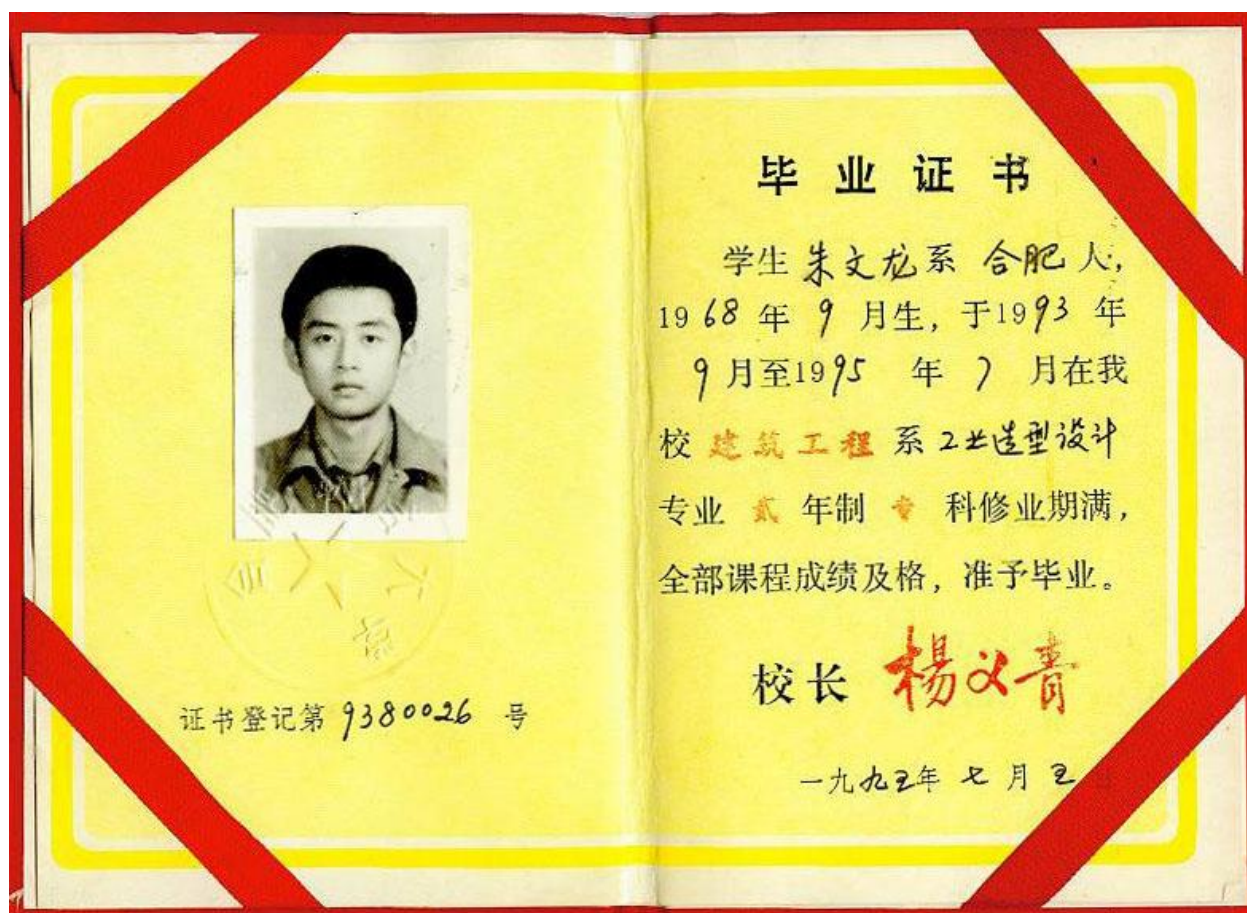 证书登记第9380026号
毕业证书
学生朱文龙系合肥人,
1968年9月生,于1993年
9月至1995年7月在我
校建筑工程系工业造型设计
专业贰年制专科修业期满,
全部课程成绩及格,准予毕业。
校长 杨义青
一九九五年七月五